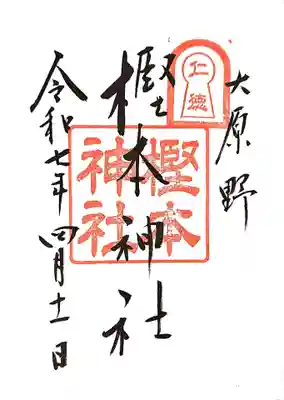 大原野
仁徳
樫本神社
樫本
神社
令和七年四月十一日